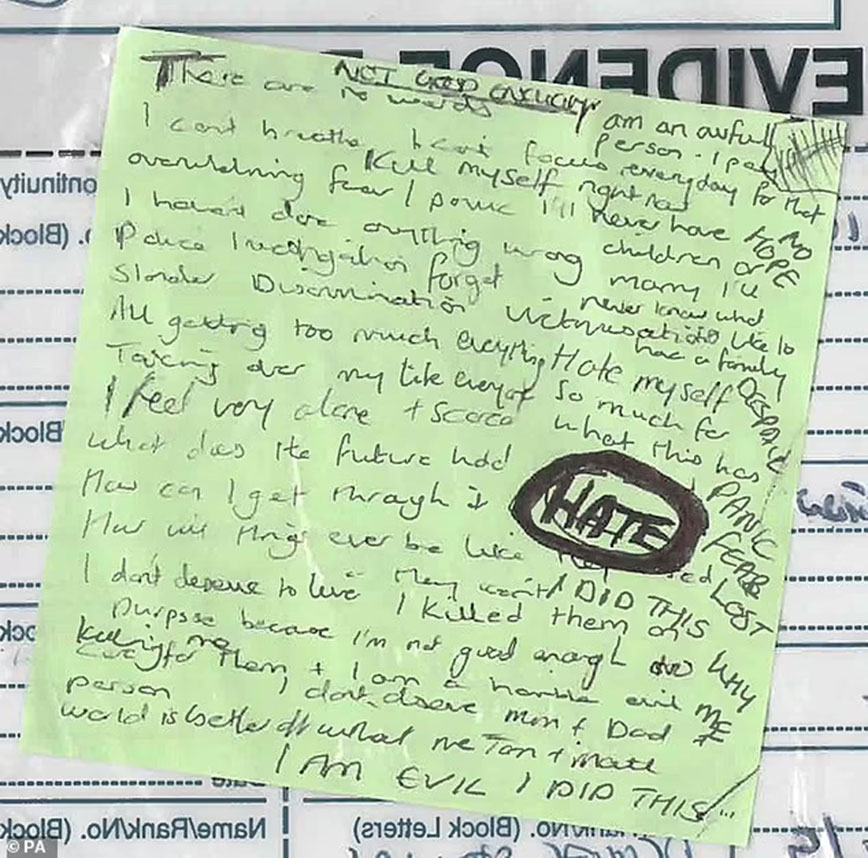 EVIDENCE
NOT GOOD ENOUGH
There are no words
I am an awful person. I pay everyday for that
I can't breathe I can't focus
Kill myself right now
overwhelming fear / panic
I'll never have children or marry I'll never know what
NO HOPE
I haven't done anything wrong
Police investigation forget
Slander Discrimination Victimisation
like to have a family
All getting too much everything
Hate myself so much for what this has
DESPAIR
Taking over my life everyone
I feel very alone + scared
What does the future hold
HATE
PANIC
FEAR
LOST
How can I get through it
How will things ever be like they used
I DID THIS
I don't deserve to live
I killed them on purpose because I'm not good enough to care for them + I am a horrible evil person
WHY ME
Killing me
I don't deserve mum + Dad
world is better off without me
Tom + matt
I AM EVIL I DID THIS
Continuity
(Block)
Block
Date
Name/Rank/No. (Block
/Rank/No. (Block Letters)
© PA